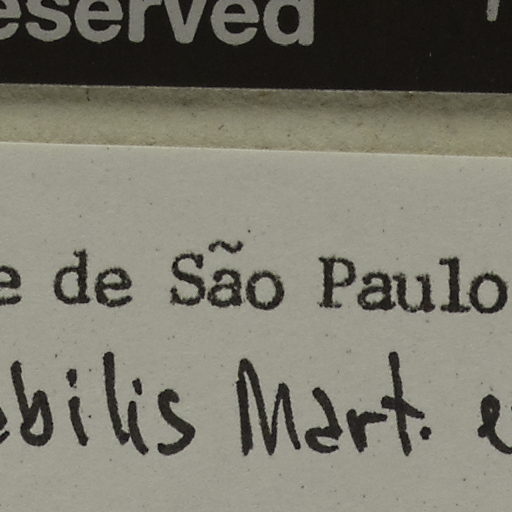 eserved
e de São Paulo
ebilis Mart. e